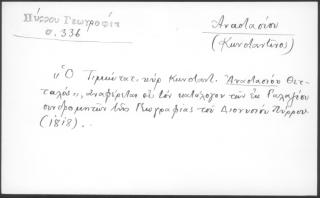 Πύρρου Γεωγραφία
σ. 336
Ἀναστασίου
(Κωνσταντῖνος)
«Ὁ Τιμιώτατ. κὺρ Κωνσταντ. Ἀναστασίου Θετ-
ταλός», ἀναφέρεται εἰς τὸν κατάλογον τῶν ἐκ Γαλαξίου
συνδρομητῶν τῆς Γεωγραφίας τοῦ Διονυσίου Πύρρου.
(1818).